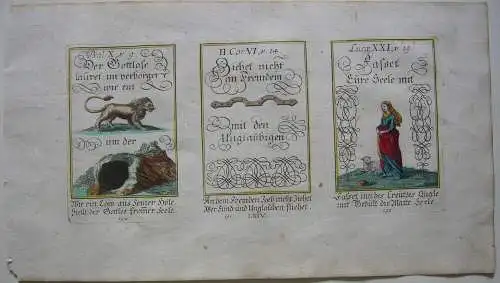 Psal. X. v. 9.
Der Gottlose
lauret im verborgen
wie ein
aus der
Wie ein Löw aus seiner Höle
stellt der Gottlos frommer Seele.
II Cor. VI. v. 14.
Ziehet nicht
an fremdem
mit den
Unglaubigen
An dem fremden Joch nicht ziehet
Wer Sünd und Unglauben fliehet
LXIV.
Luc. XXI. v. 19.
Fasset
Eure Seele mit
Fasset in des Creutzes Quale
mit Gedult die Matte Seele